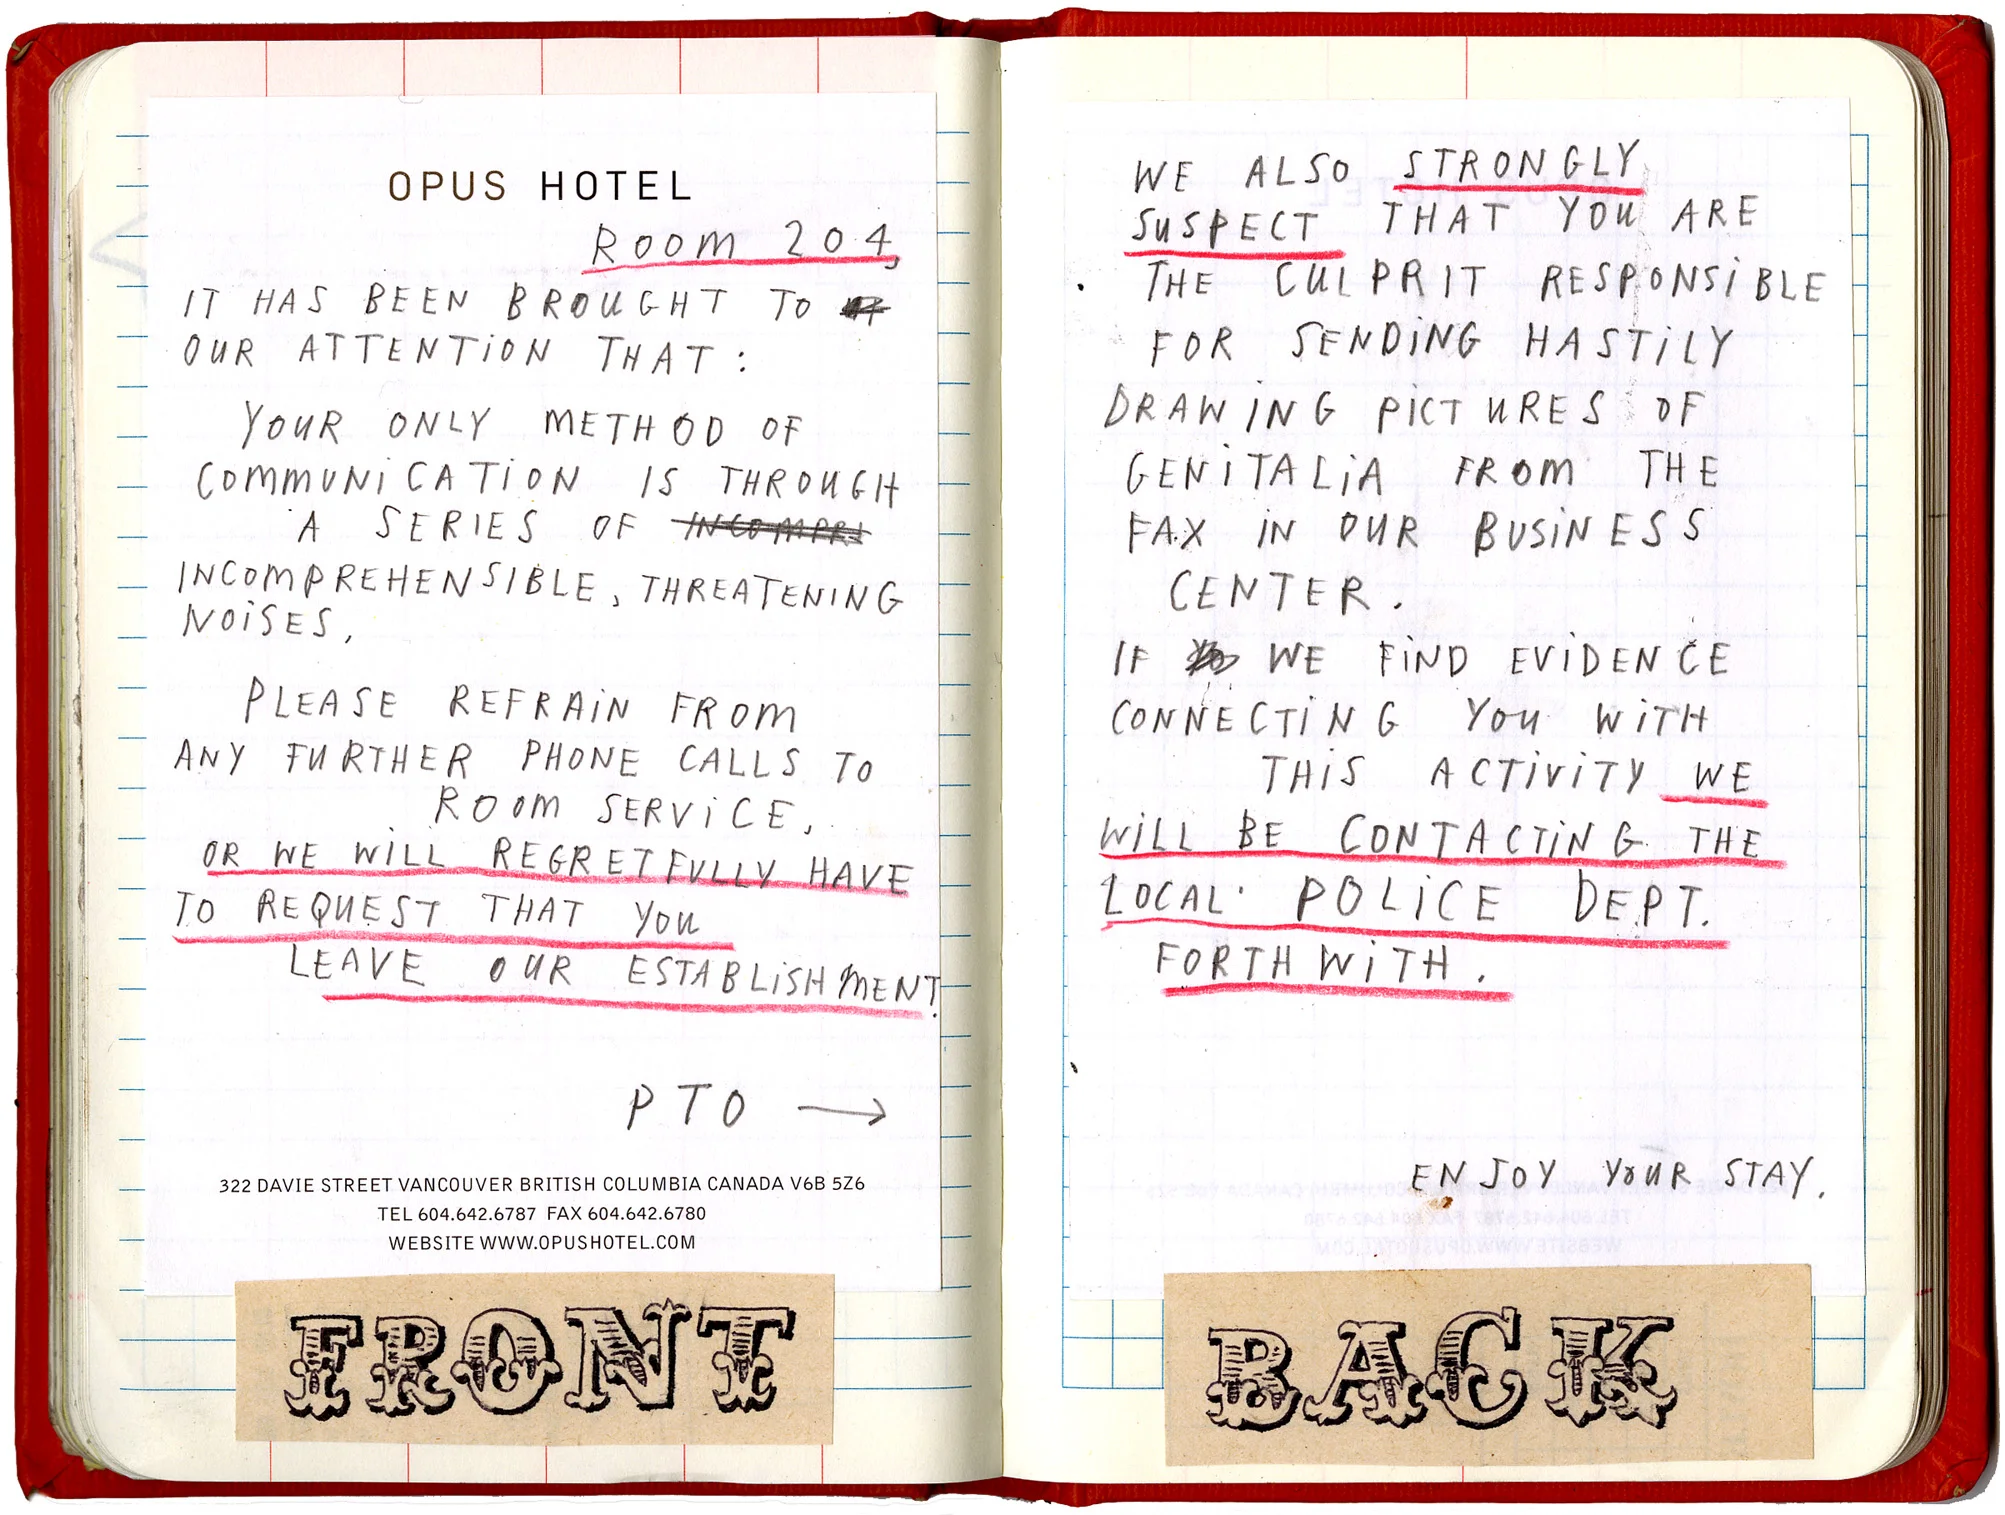 OPUS HOTEL
ROOM 204,
IT HAS BEEN BROUGHT TO
OUR ATTENTION THAT :
YOUR ONLY METHOD OF
COMMUNICATION IS THROUGH
A SERIES OF INCOMPRI
INCOMPREHENSIBLE, THREATENING
NOISES,
PLEASE REFRAIN FROM
ANY FURTHER PHONE CALLS TO
ROOM SERVICE,
OR WE WILL REGRETFULLY HAVE
TO REQUEST THAT YOU
LEAVE OUR ESTABLISHMENT.
PTO →
322 DAVIE STREET VANCOUVER BRITISH COLUMBIA CANADA V6B 5Z6
TEL 604.642.6787 FAX 604.642.6780
WEBSITE WWW.OPUSHOTEL.COM
FRONT
WE ALSO STRONGLY
SUSPECT THAT YOU ARE
THE CULPRIT RESPONSIBLE
FOR SENDING HASTILY
DRAWING PICTURES OF
GENITALIA FROM THE
FAX IN OUR BUSINESS
CENTER.
IF WE FIND EVIDENCE
CONNECTING YOU WITH
THIS ACTIVITY WE
WILL BE CONTACTING THE
LOCAL POLICE DEPT.
FORTHWITH.
ENJOY YOUR STAY.
BACK